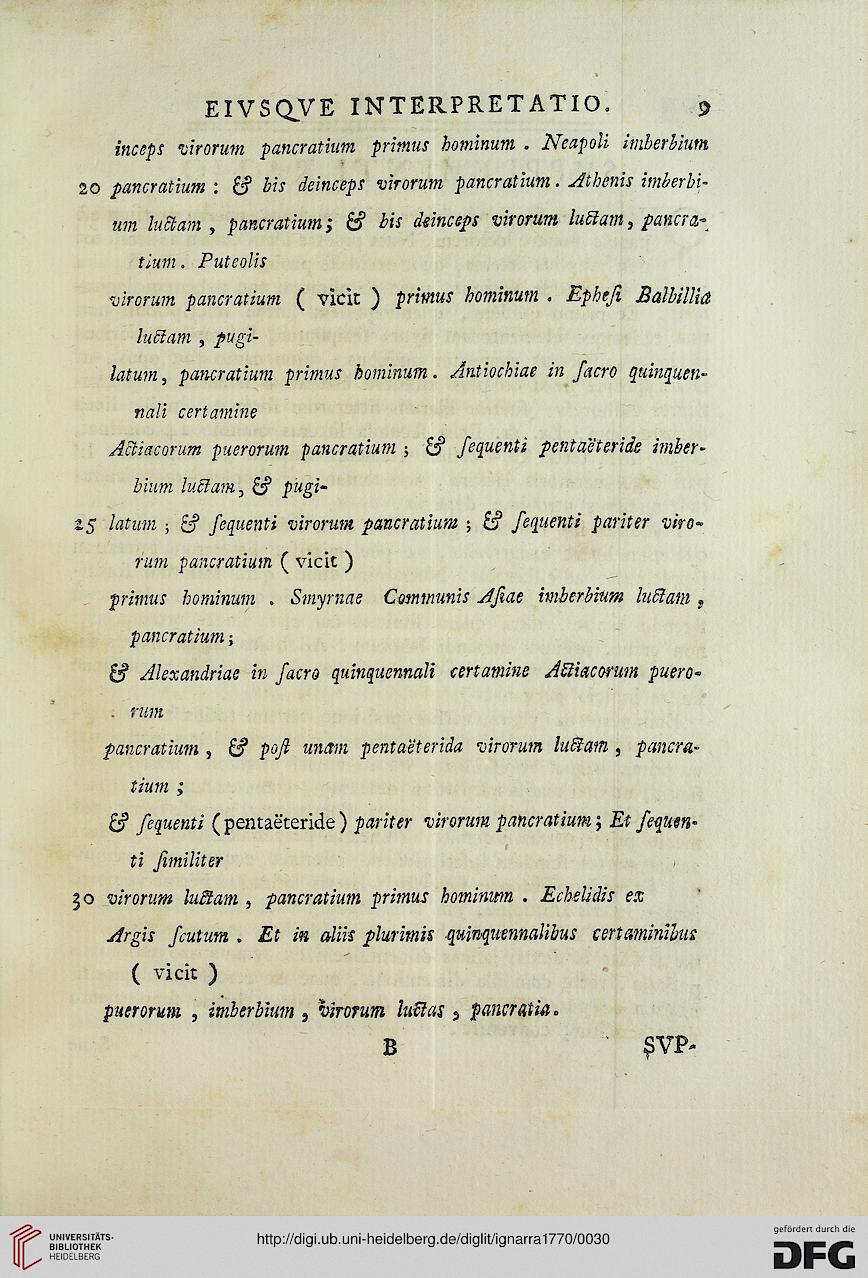 EIVSQVE INTERPRETATIO. 9
inceps virorum pancratium primus hominum . Neapoli imberbium
20 pancratium : & bis deinceps virorum pancratium. Athenis imberbi-
um luctam , pancratium; & bis deinceps virorum luctam, pancra-
tium. Puteolis
virorum pancratium ( vicit ) primus hominum . Ephesi Balbillia
luctam , pugi-
latum, pancratium primus hominum. Antiochiae in sacro quinquen-
nali certamine
Actiacorum puerorum pancratium ; & sequenti pentaëteride imber-
bium luctam, & pugi-
25 latum ; & sequenti virorum pancratium ; & sequenti pariter viro-
rum pancratium ( vicit )
primus hominum . Smyrnae Communis Asiae imberbium luctam ,
pancratium;
& Alexandriae in sacro quinquennali certamine Actiacorum puero-
rum
pancratium , & post unam pentaëterida virorum luctam , pancra-
tium ;
& sequenti (pentaëteride) pariter virorum pancratium; Et sequen-
ti similiter
30 virorum luctam , pancratium primus hominum . Echelidis ex
Argis scutum . Et in aliis plurimis quinquennalibus certaminibus
( vicit )
puerorum , imberbium , virorum luctas , pancratia.
B SVP-
UNIVERSITÄTS-
BIBLIOTHEK
HEIDELBERG
http://digi.ub.uni-heidelberg.de/diglit/ignarra1770/0030
gefördert durch die
DFG